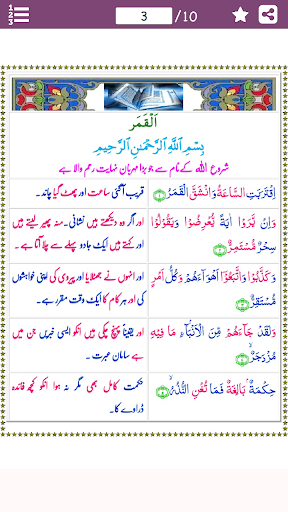 3 /10
اَلْقَمَر
بِسْمِ اللَّهِ الرَّحْمَٰنِ الرَّحِيمِ
شروع اللہ کے نام سے جو بڑا مہربان نہایت رحم والا ہے
اِقْتَرَبَتِ السَّاعَةُ وَانْشَقَّ الْقَمَرُ ۝۱
قریب آگئی ساعت اور پھٹ گیا چاند۔
وَاِنْ يَّرَوْا اٰيَةً يُّعْرِضُوْا وَيَقُوْلُوْا
سِحْرٌ مُّسْتَمِرٌّ ۝۲
اور اگر وہ دیکھتے ہیں نشانی۔ منہ پھیر لیتے ہیں
اور کہتے ہیں ایک جادو پہلے سے چلا آتا ہے۔
وَكَذَّبُوْا وَاتَّبَعُوْٓا اَهْوَآءَهُمْ وَكُلُّ اَمْرٍ
مُّسْتَقِرٌّ ۝۳
اور انہوں نے جھٹلایا اور پیروی کی اپنی خواہشوں
کی اور ہر کام کا ایک وقت مقرر ہے۔
وَلَقَدْ جَآءَهُمْ مِّنَ الْاَنْۢبَآءِ مَا فِيْهِ
مُزْدَجَرٌ ۝۴
اور یقیناً پہنچ چکی ہیں انکو ایسی خبریں جن میں
ہے سامان عبرت ۔
حِكْمَةٌۢ بَالِغَةٌ فَمَا تُغْنِ النُّذُرُ ۝۵
حکمت کامل بھی مگر نہ ہوا انکو کچھ فائدہ
ڈراوے کا۔